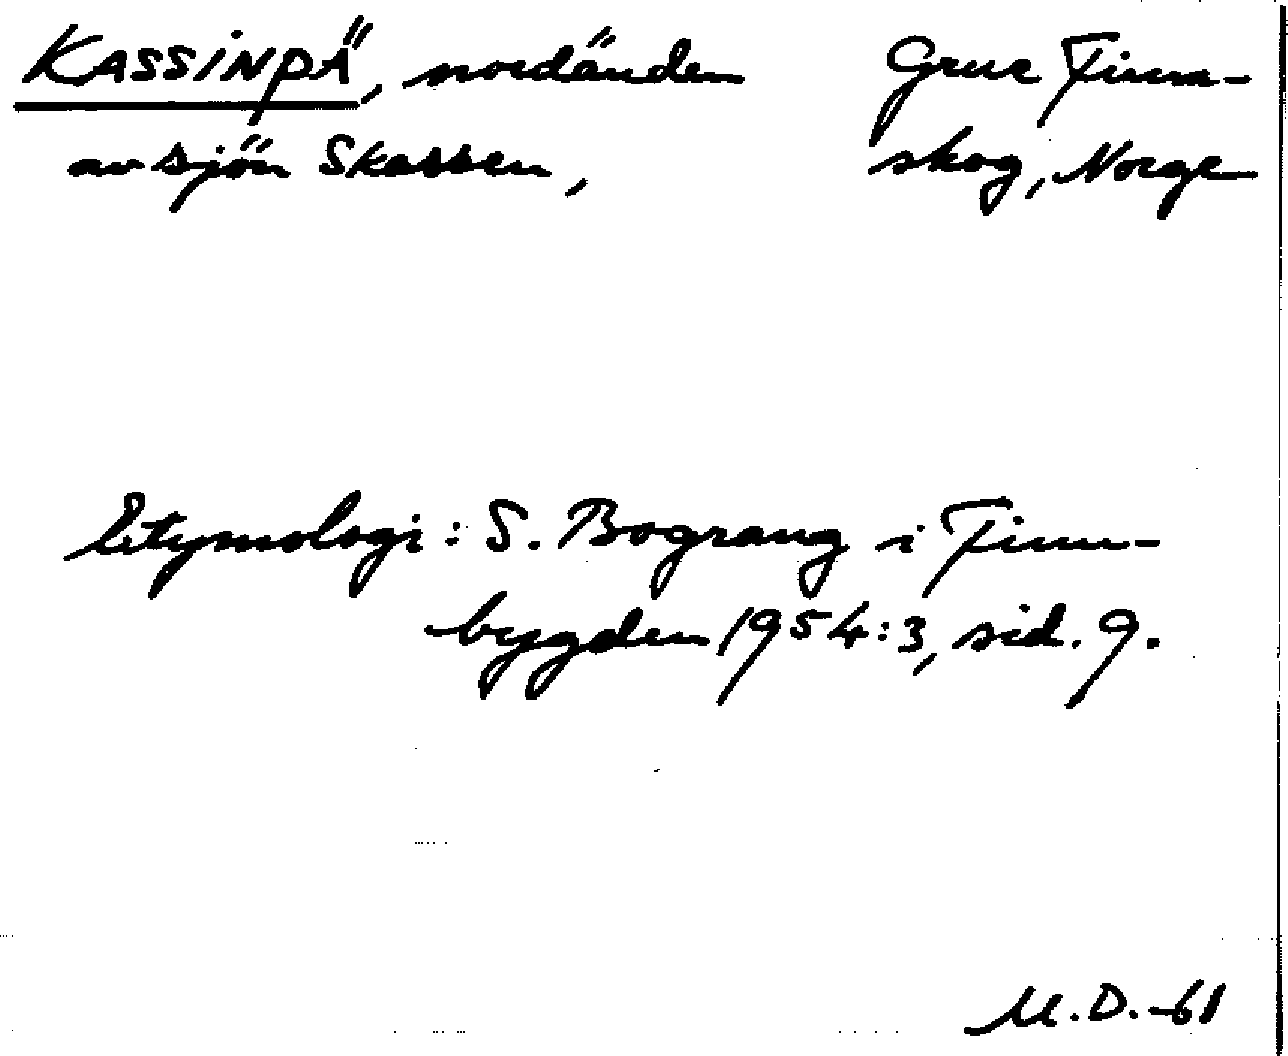 KASSINPÄ, nordänden
av sjön Skassen,
Grue Finn-
skog, Norge
Etymologi: S. Bograng i Finn-
bygden 1954:3, sid. 9.
M.D.-61